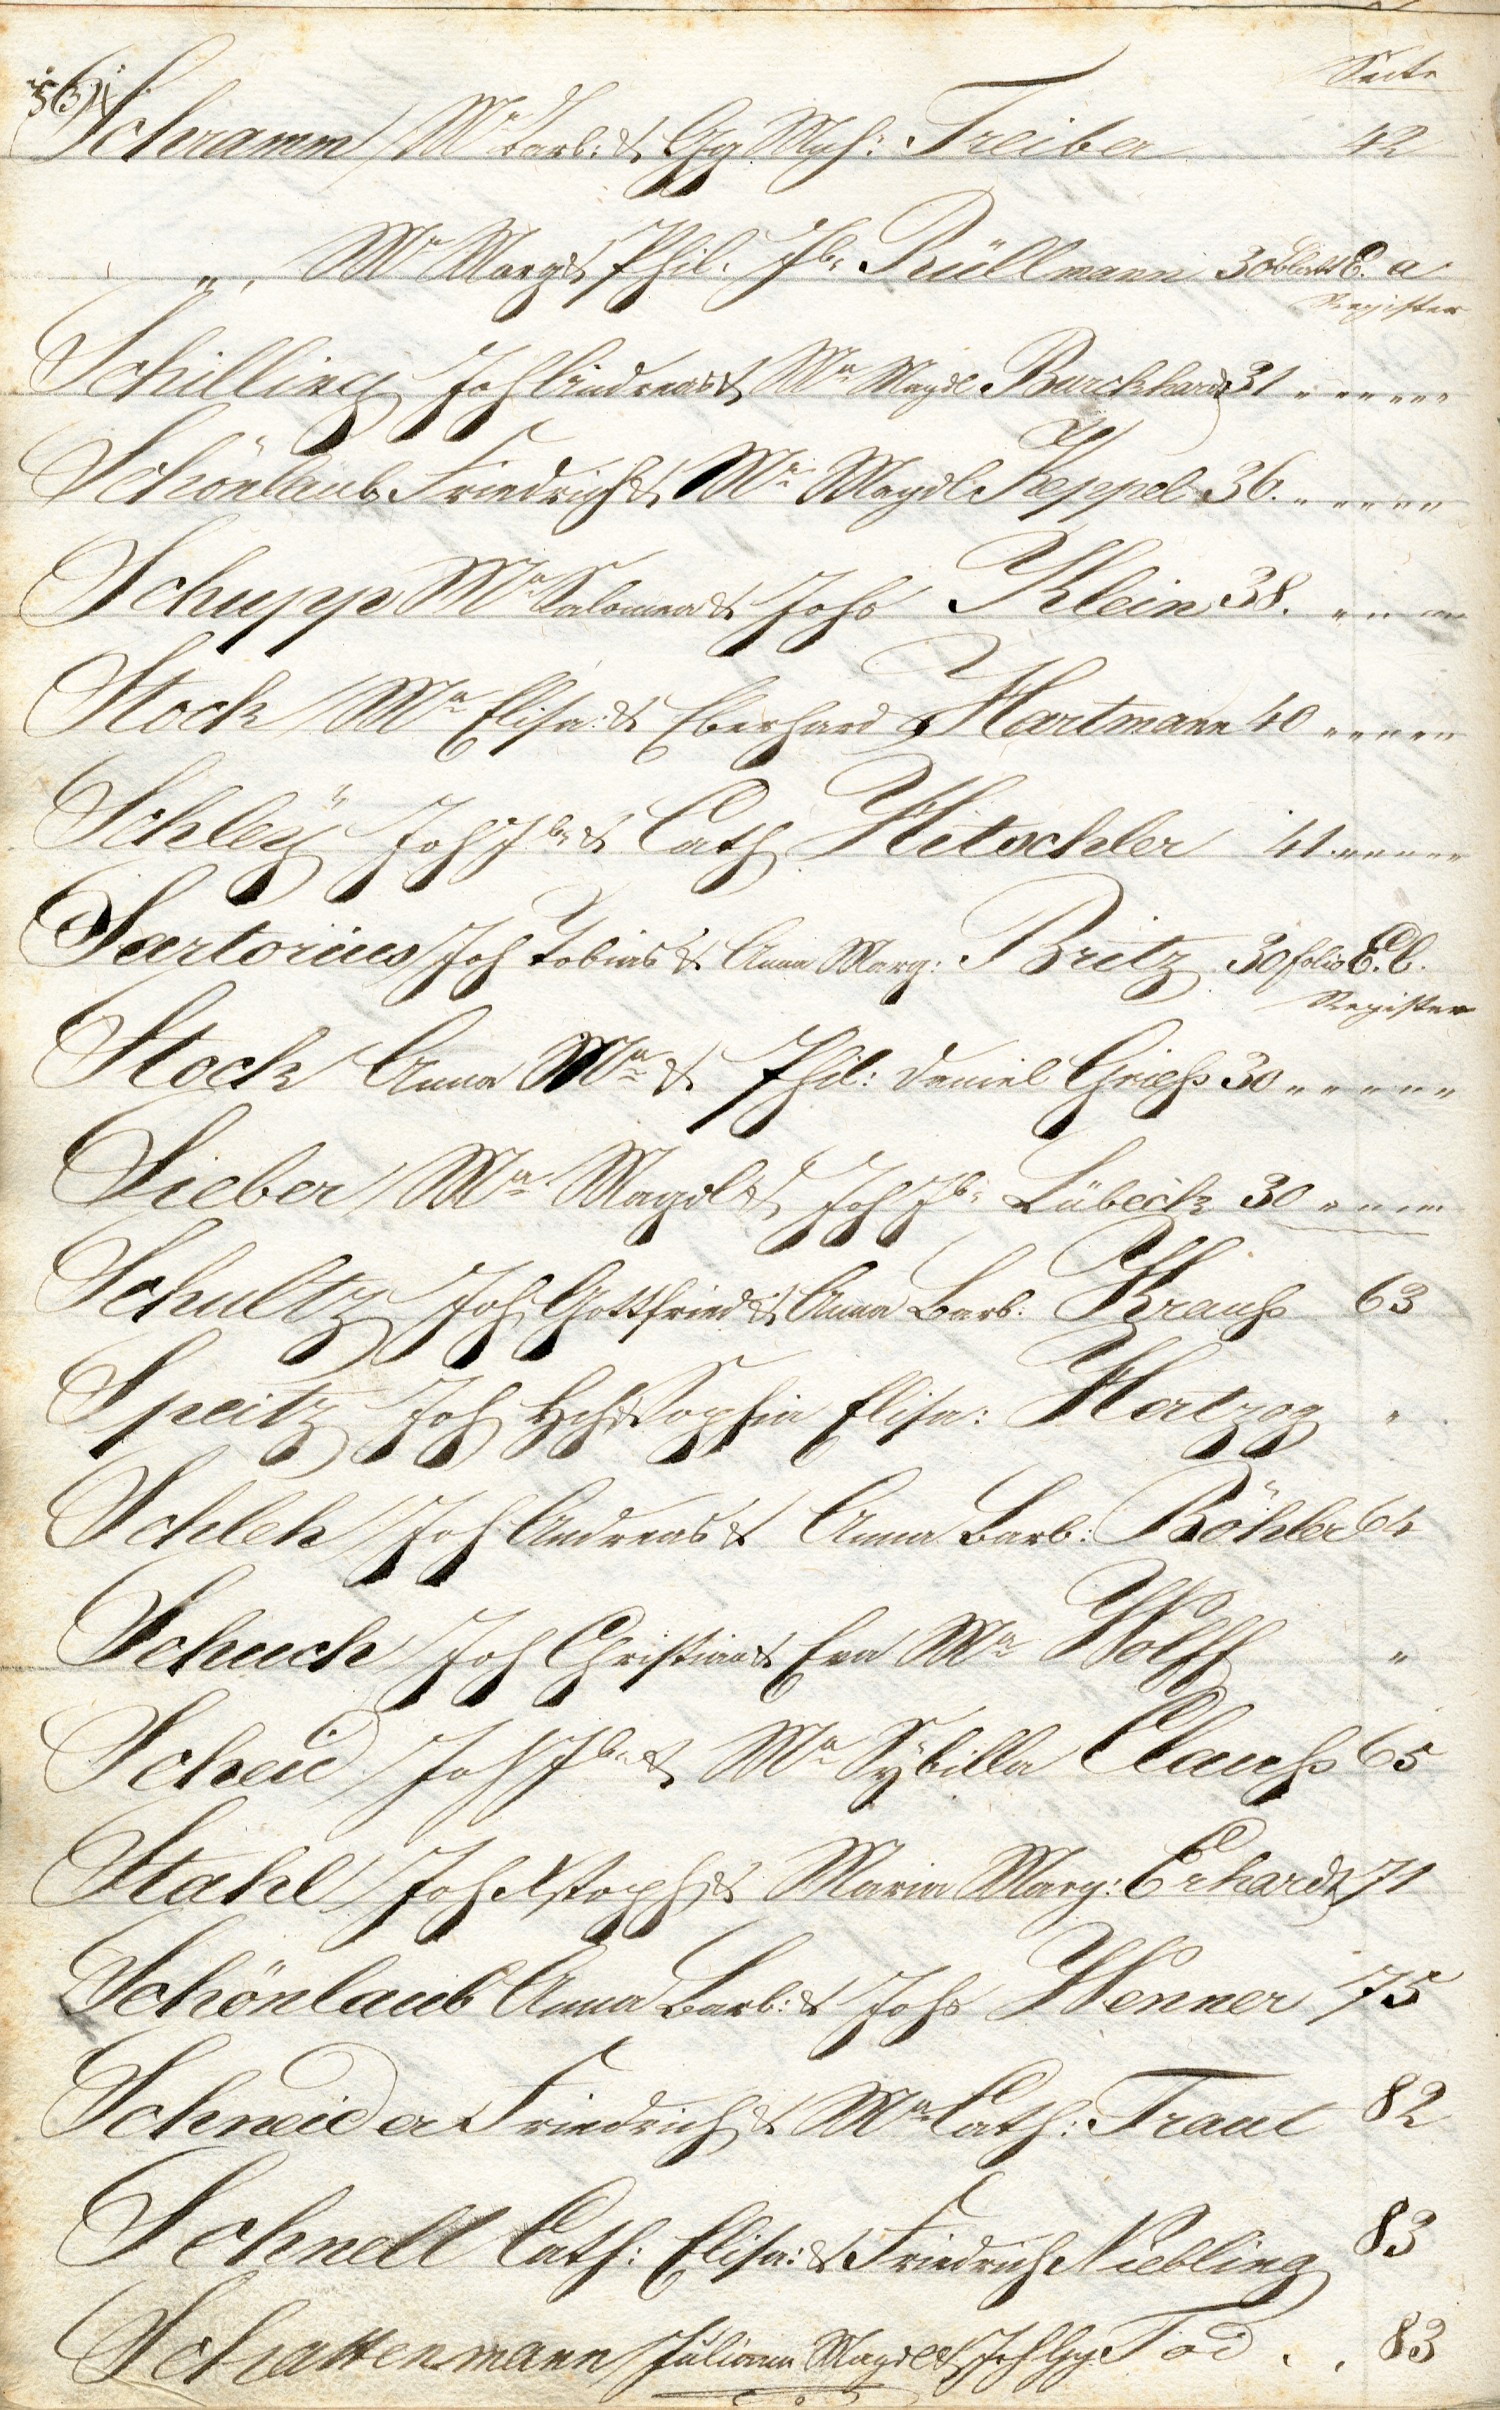 Seite
Schramm Mª Barb: & Gg Mich: Treiber 42
" " Mª Marg & Phil. Jb: Rüllmann 30 Blatt E. a
Register
Schilling Joh Andreas & Mª Magdl Burckhardt 31 " " " " " "
Schönlaub Friedrich & Mª Magdl. Keppel 36. " " " " "
Schupp Mª Salomea & Johs Klein 38. " " " "
Stock Mª Elisa: & Eberhard Hartmann 40 " " " " "
Schleÿ Joh Jb: & Cath Hitschler 41 " " " " "
Sartorius Joh Tobias & Anna Marg: Britz 30 folio E. b.
Register
Stock Anna Mª & Phil: Daniel Grieß 30 " " " " " "
Sieber Mª Magdl & Joh Jb: Lübeck 30 " " " "
Schultz Joh Gottfried & Anna Barb: Krauß 63
Speitz Joh Hch & Sophia Elisa: Hertzog "
Schleh Joh Andreas & Anna Barb: Böhler 64
Schuch Joh Christian & Eva Mª Wolff "
Scheid Joh Jb: & Mª Sÿbilla Clauß 65
Stahl Joh Xstoph & Maria Marg: Erhardt 71
Schönlaub Anna Barb: & Johs Wenner 75
Schneider Friedrich & Mª Cath: Traut 82
Schnell Cath: Elisa: & Friedrich Niebling 83
Schattenmann Juliana Magdl & Joh Gg Tod . . 83